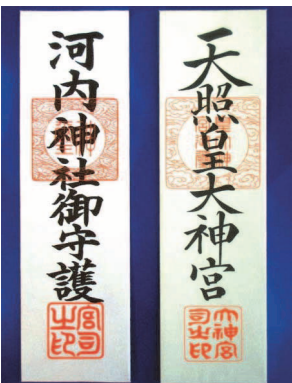 天照皇大神宮
大神宮
司之印
河内神社御守護
宮司
之印